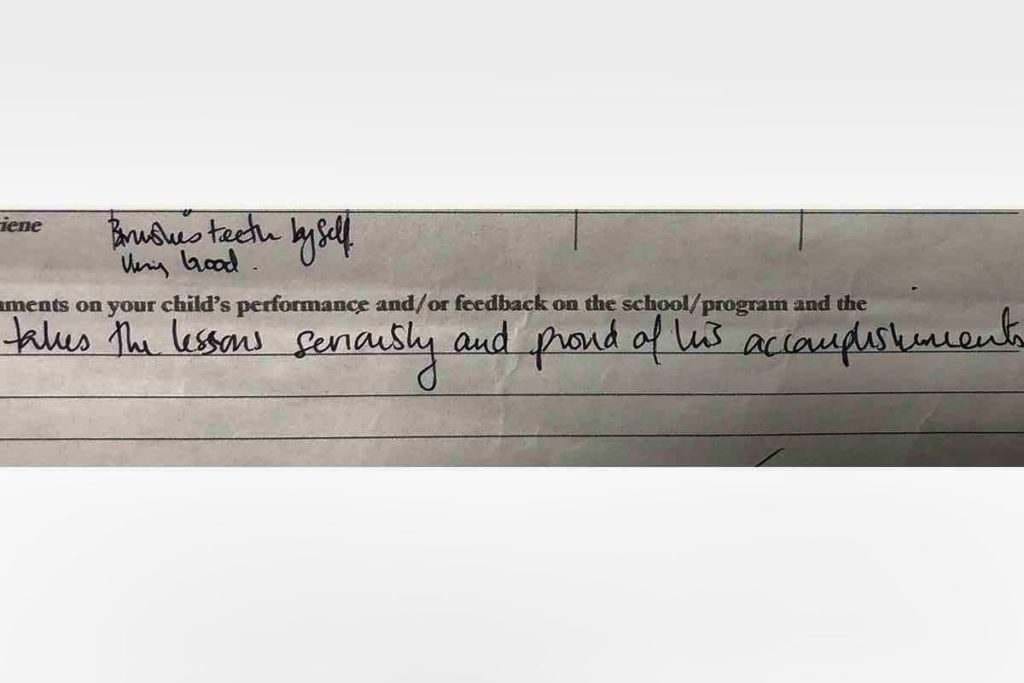 iene Brushes teeth by self.
Very Good.
mments on your child's performance and/or feedback on the school/program and the
takes the lessons seriously and proud of his accomplishments